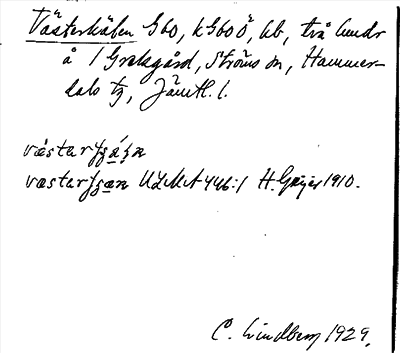 Västerkälen G60, kG60Ö, bb, två hundr
å 1 Grelsgård, Ströms sn, Hammer-
dals tg, Jämtl. l.
västerʃʒä́ʒn
västerʃʒän ULMA 446:1 H. Geijer 1910.
C. Lindberg 1929.